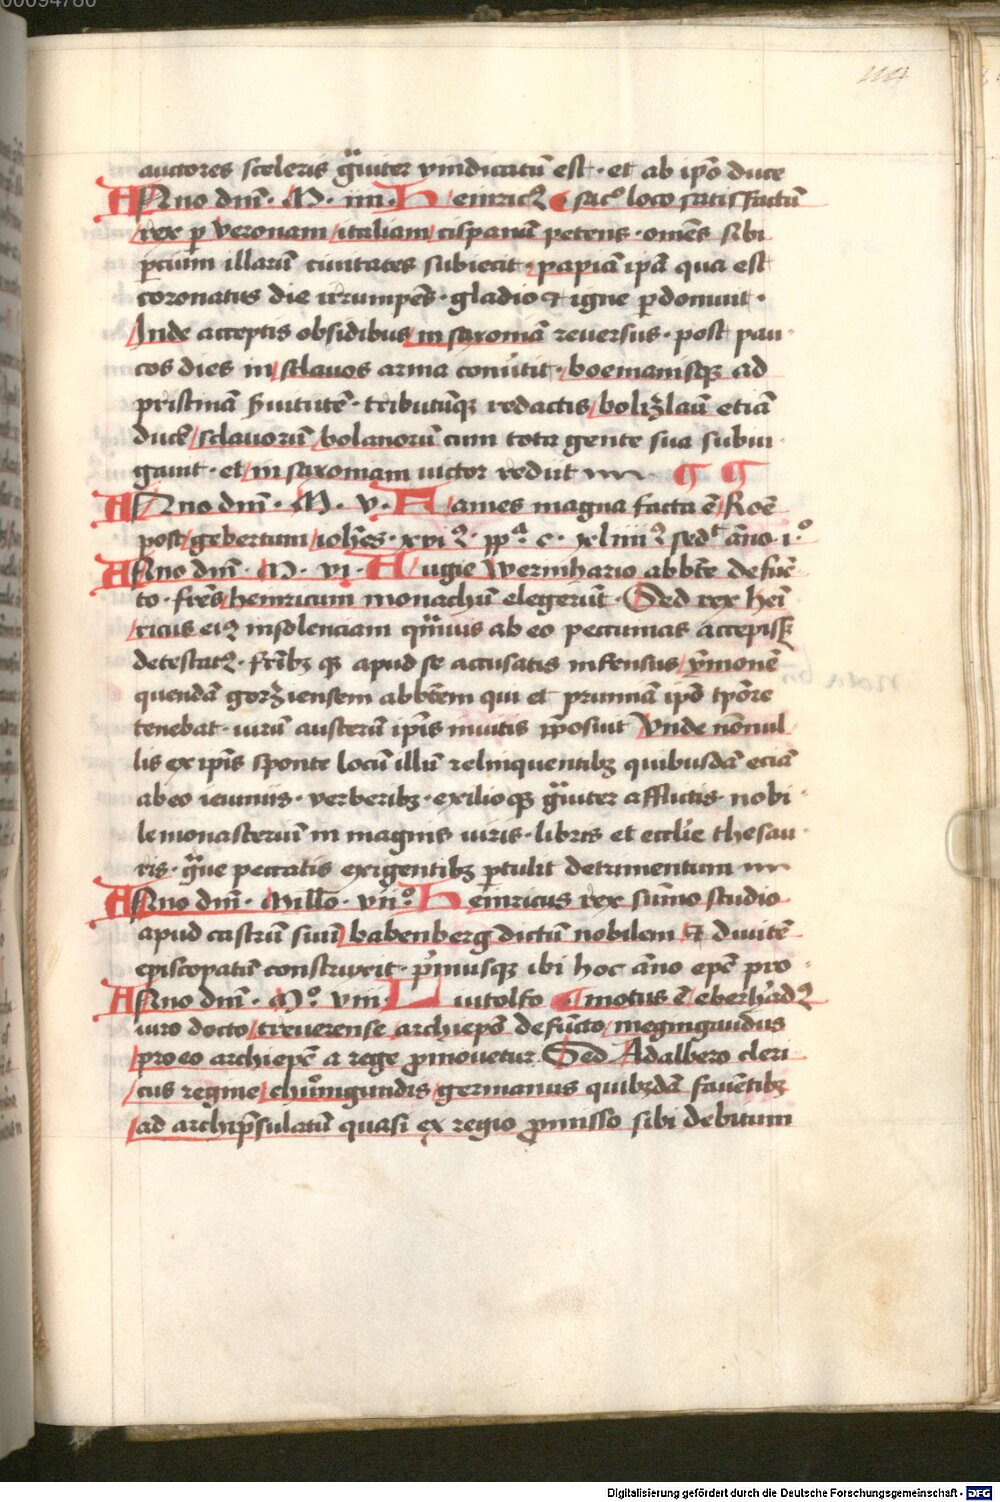 00094780
114
auctores sceleris g̃uiter vindicatũ est · et ab ip̃o duce
Anno dñi · M · iiii · Heinricꝰ ¶ sac̃ loco satisfactũ
rex p veronam italiam cispanã petens · omẽs sibi
ꝑcium illarũ ciuitates subiecit · papiã ip̃ã qua est
coronatus die irrumpẽs · gladio et igne ꝑdomuit ·
Inde acceptis obsidibus in saxoniã reuersus · post pau
cos dies in sclauos arma conũtit · boemaniisqꝫ ad
pristinã s̃uitutẽ · tributũqꝫ redactis bolizlaũ etiã
ducẽ sclauorũ bolanorũ cum tota gente sua subiu
gauit · et in saxoniam uictor rediit ¶ ¶
Anno dñi · M · v · Fames magna facta ẽ Roẽ
post gebertum ioh̃es · xviꝰ · pp̃a · c · xliiiiꝰ sed̃t ãno · i°
Anno dñi · M · vi · Augie wernhario abb̃te defũc
to · fr̃es heinricum monachũ elegerũt · Sed rex hei
ricus eiꝰ insolenciam q̃muis ab eo peccunias accepiss̃
detestatꝰ · fr̃ibꝫ qꝫ apud se accusatis infensus ymonẽ
quendã gorziensem abb̃tem qui et prumiã ip̃o tp̃ore
tenebat · uirũ austerũ ip̃is inuitis p̃posuit Vnde nõnul
lis ex ip̃is sponte locũ illũ relinquentibꝫ quibusdã eciã
ab eo ieiuniis · verberibꝫ · exilioqꝫ g̃uiter afflictis · nobi
le monasteriũ in magnis uiris · libris et eccl̃ie thesau
ris · g̃ue peccatis exigentibꝫ ꝑtulit detrimentum
Anno dñi · Mill̃o · vii° · Heinricus rex sũmo studio
apud castrũ suũ babenberg dictũ nobilem et diuitẽ
episcopatũ construxit · p̃musqꝫ ibi hoc ãno ep̃c pro
Anno dñi · M° · viii · Liutolfo ¶ motus ẽ eberh̃adꝰ
uiro docto treuerense archiep̃o defũcto megingaudus
pro eo archiep̃c a rege p̃mouetur · Sed Adalbero cleri
cus regine chũnigundis germanus quibꝫdã fauẽtibꝫ
ad archip̃sulatũ quasi ex regio p̃misso sibi debitum
nota
Digitalisierung gefördert durch die Deutsche Forschungsgemeinschaft - DFG